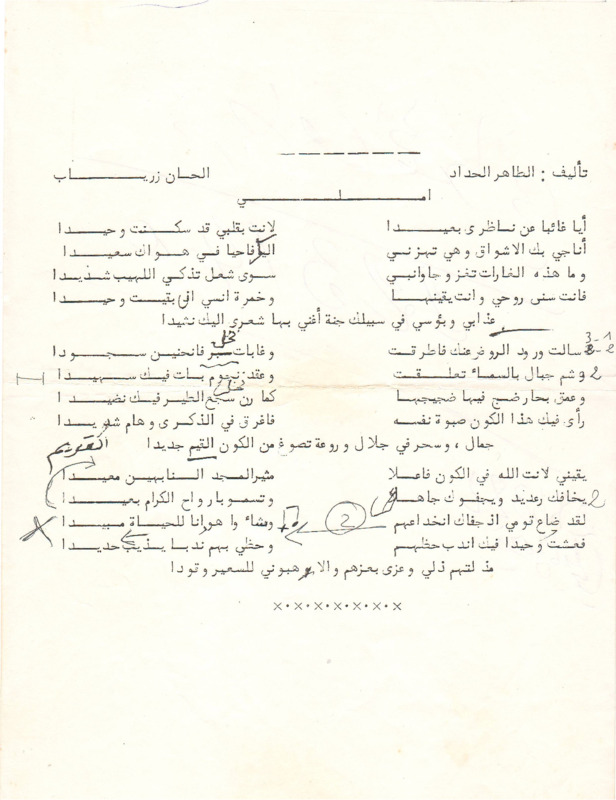 تأليف : الطاهر الحداد الحان زرياب
املي
أيا غائبا عن ناظري بعيدا لانت بقلبي قد سكنت وحيدا
أناجي بك الاشواق وهي تهزني فاحيا في هواك سعيدا
وما هذه الغارات تغزو جوانبي سوى شعل تذكي اللهيب شديدا
فانت سنى روحي وانت يقينها وخمرة انسي بقيت وحيدا
عذابي وبؤسي في سبيلك جنة أغني بها شعرى اليك نشيدا
3-1
2-2 سالت ورود الروض عنك فاطرقت وغابات فانحنين سجودا
2 وشم جبال بالسماء تعلقت وعقد نجوم بات فيك سهيدا
وعمق بحار ضج فيها ضجيجها كما رن سجع الطير فيك نضيدا
رأى فيك هذا الكون صبوة نفسه فاغرق في الذكرى وهام شريدا
جمال ، وسحر في جلال وروعة تصوغ من الكون القيم جديدا القديم
يقيني لانت الله في الكون فاعلا مثير المجد النابهين معيدا
2 يخافك رعديد ويجفوك جاهل وتسمو بارواح الكرام بعيدا
لقد ضاع قومي اذ جفاك انخداعهم 2 هوانا للحياة مبيدا
فعشت وحيدا فيك اندب حظهم وحظي بهم ندبا يذيب حديدا
مذلتهم ذلي وعزى بعزهم والا هبوني للسعير وقودا
x.x.x.x.x.x.x.x